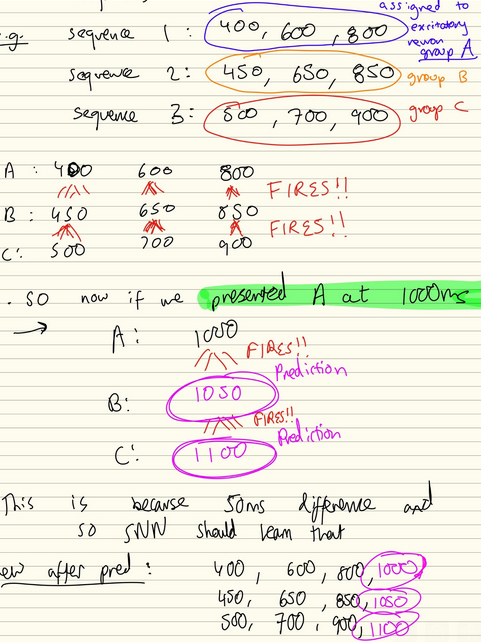 assigned to
e.g. sequence 1: 400, 600, 800 excitatory
neuron
group A
sequence 2: 450, 650, 850 group B
sequence 3: 500, 700, 900 group C
A: 400 600 800
FIRES!!
B: 450 650 850
FIRES!!
C: 500 700 900
. so now if we presented A at 1000ms
→ A: 1000
FIRES!!
Prediction
B: 1050
FIRES!!
Prediction
C: 1100
This is because 50ms difference and
so SNN should learn that
ew after pred: 400, 600, 800, 1000
450, 650, 850, 1050
500, 700, 900, 1100